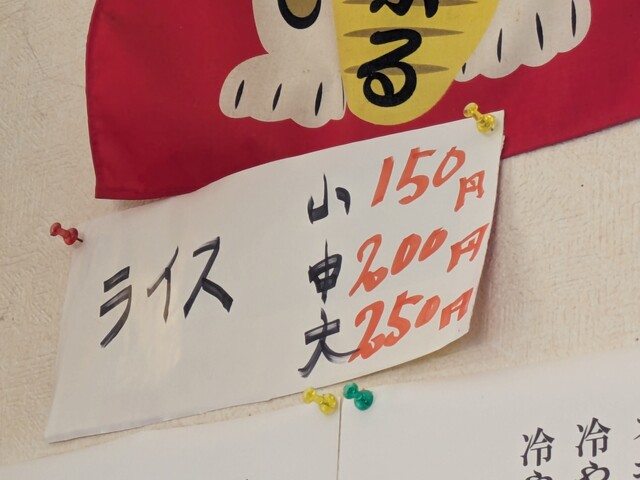 ふる
ライス
小 150円
中 200円
大 250円
冷や
冷